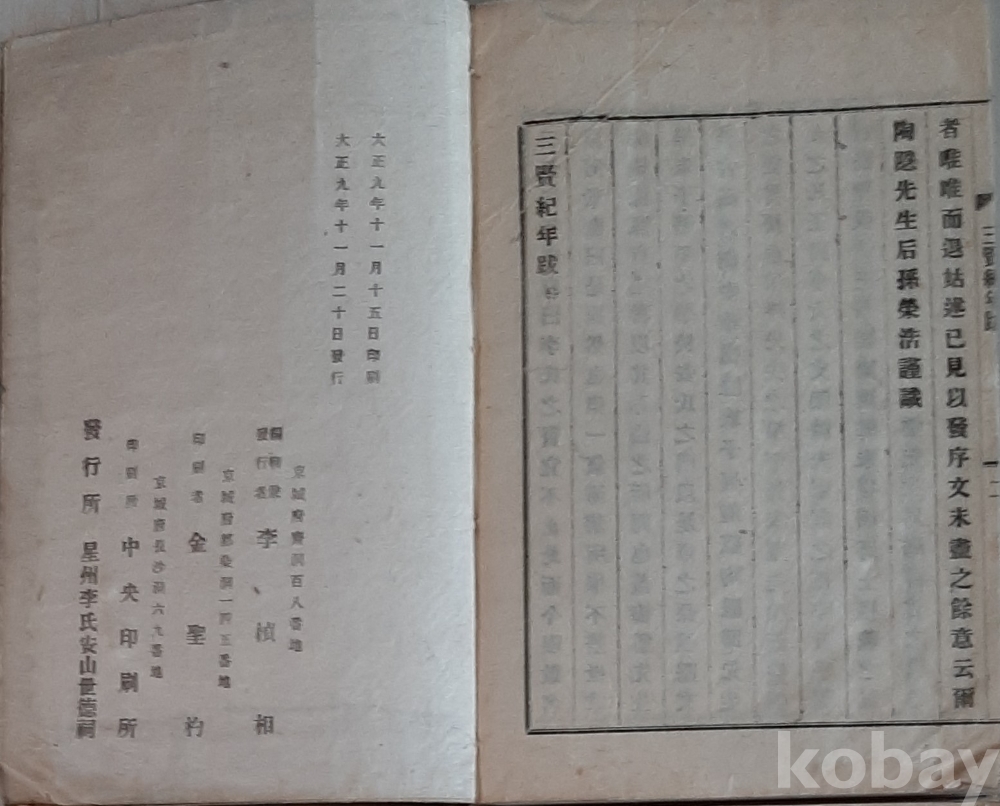 者唯唯而退姑述已見以發序文未盡之餘意云爾
陶隱先生后孫榮浩謹識
三賢紀年跋
大正九年十一月十五日印刷
大正九年十一月二十日發行
京城府齋洞百八番地
發行者 李 楨 相
一四五番地
印刷者 金 聖 杓
京城府長沙洞六九番地
印刷所 中央印刷所
發行所 星州李氏安山世德祠
kobay